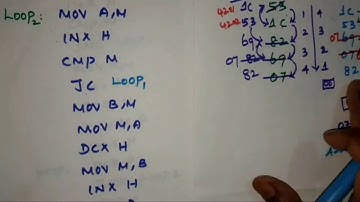 LOOP2: MOV A,M
INX H
CMP M
JC LOOP1
MOV B,M
MOV M,A
DCX H
MOV M,B
INX H
4201 1C 53 1 4
4202 53 1C 2 3
69 82 3 2
07 82 69 4 1
82 07
1C
53
82